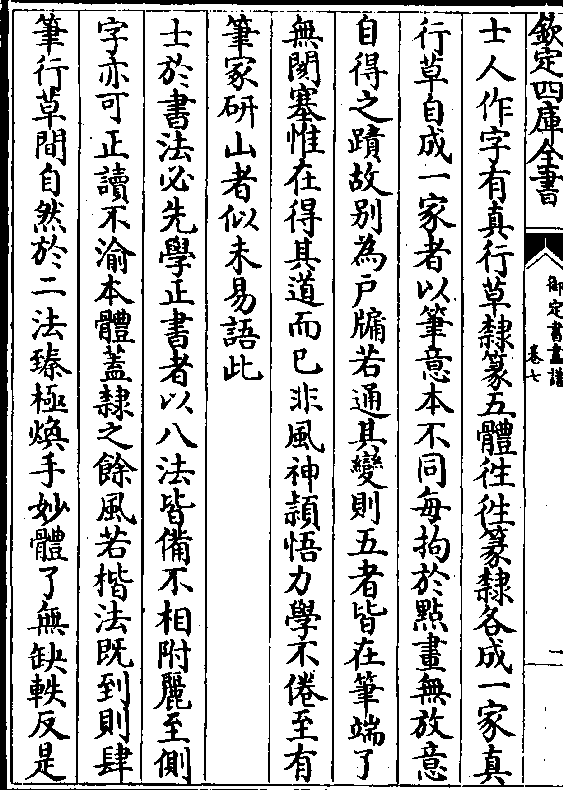 欽定四庫全書
御定書畫譜
卷七
二
士人作字有真行草隸篆五體徃徃篆隸各成一家真
行草自成一家者以筆意本不同每拘於點畫無放意
自得之蹟故别為戸牖若通其變則五者皆在筆端了
無閡塞惟在得其道而已非風神頴悟力學不倦至有
筆冢研山者似未易語此
士於書法必先學正書者以八法皆備不相附麗至側
字亦可正讀不渝本體蓋隸之餘風若楷法既到則肆
筆行草間自然於二法臻極煥手妙體了無缺軼反是